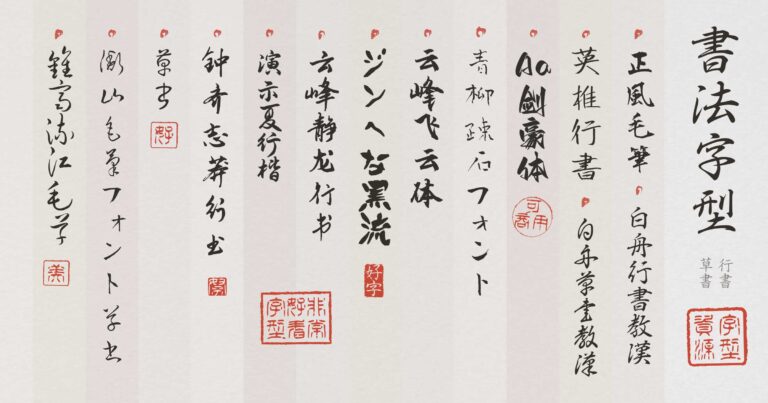 書法字型
行書
草書
字型
資源
正風毛筆
白舟行書教漢
英椎行書
白舟草書教漢
Aa劍豪体
可商用
青柳疎石フォント
云峰飞云体
ジンへな黒流
好字
云峰静龙行书
非常
好看
字型
演示夏行楷
钟齐志莽行书
草书
好
衡山毛筆フォント草書
鐘齐流江毛草
美